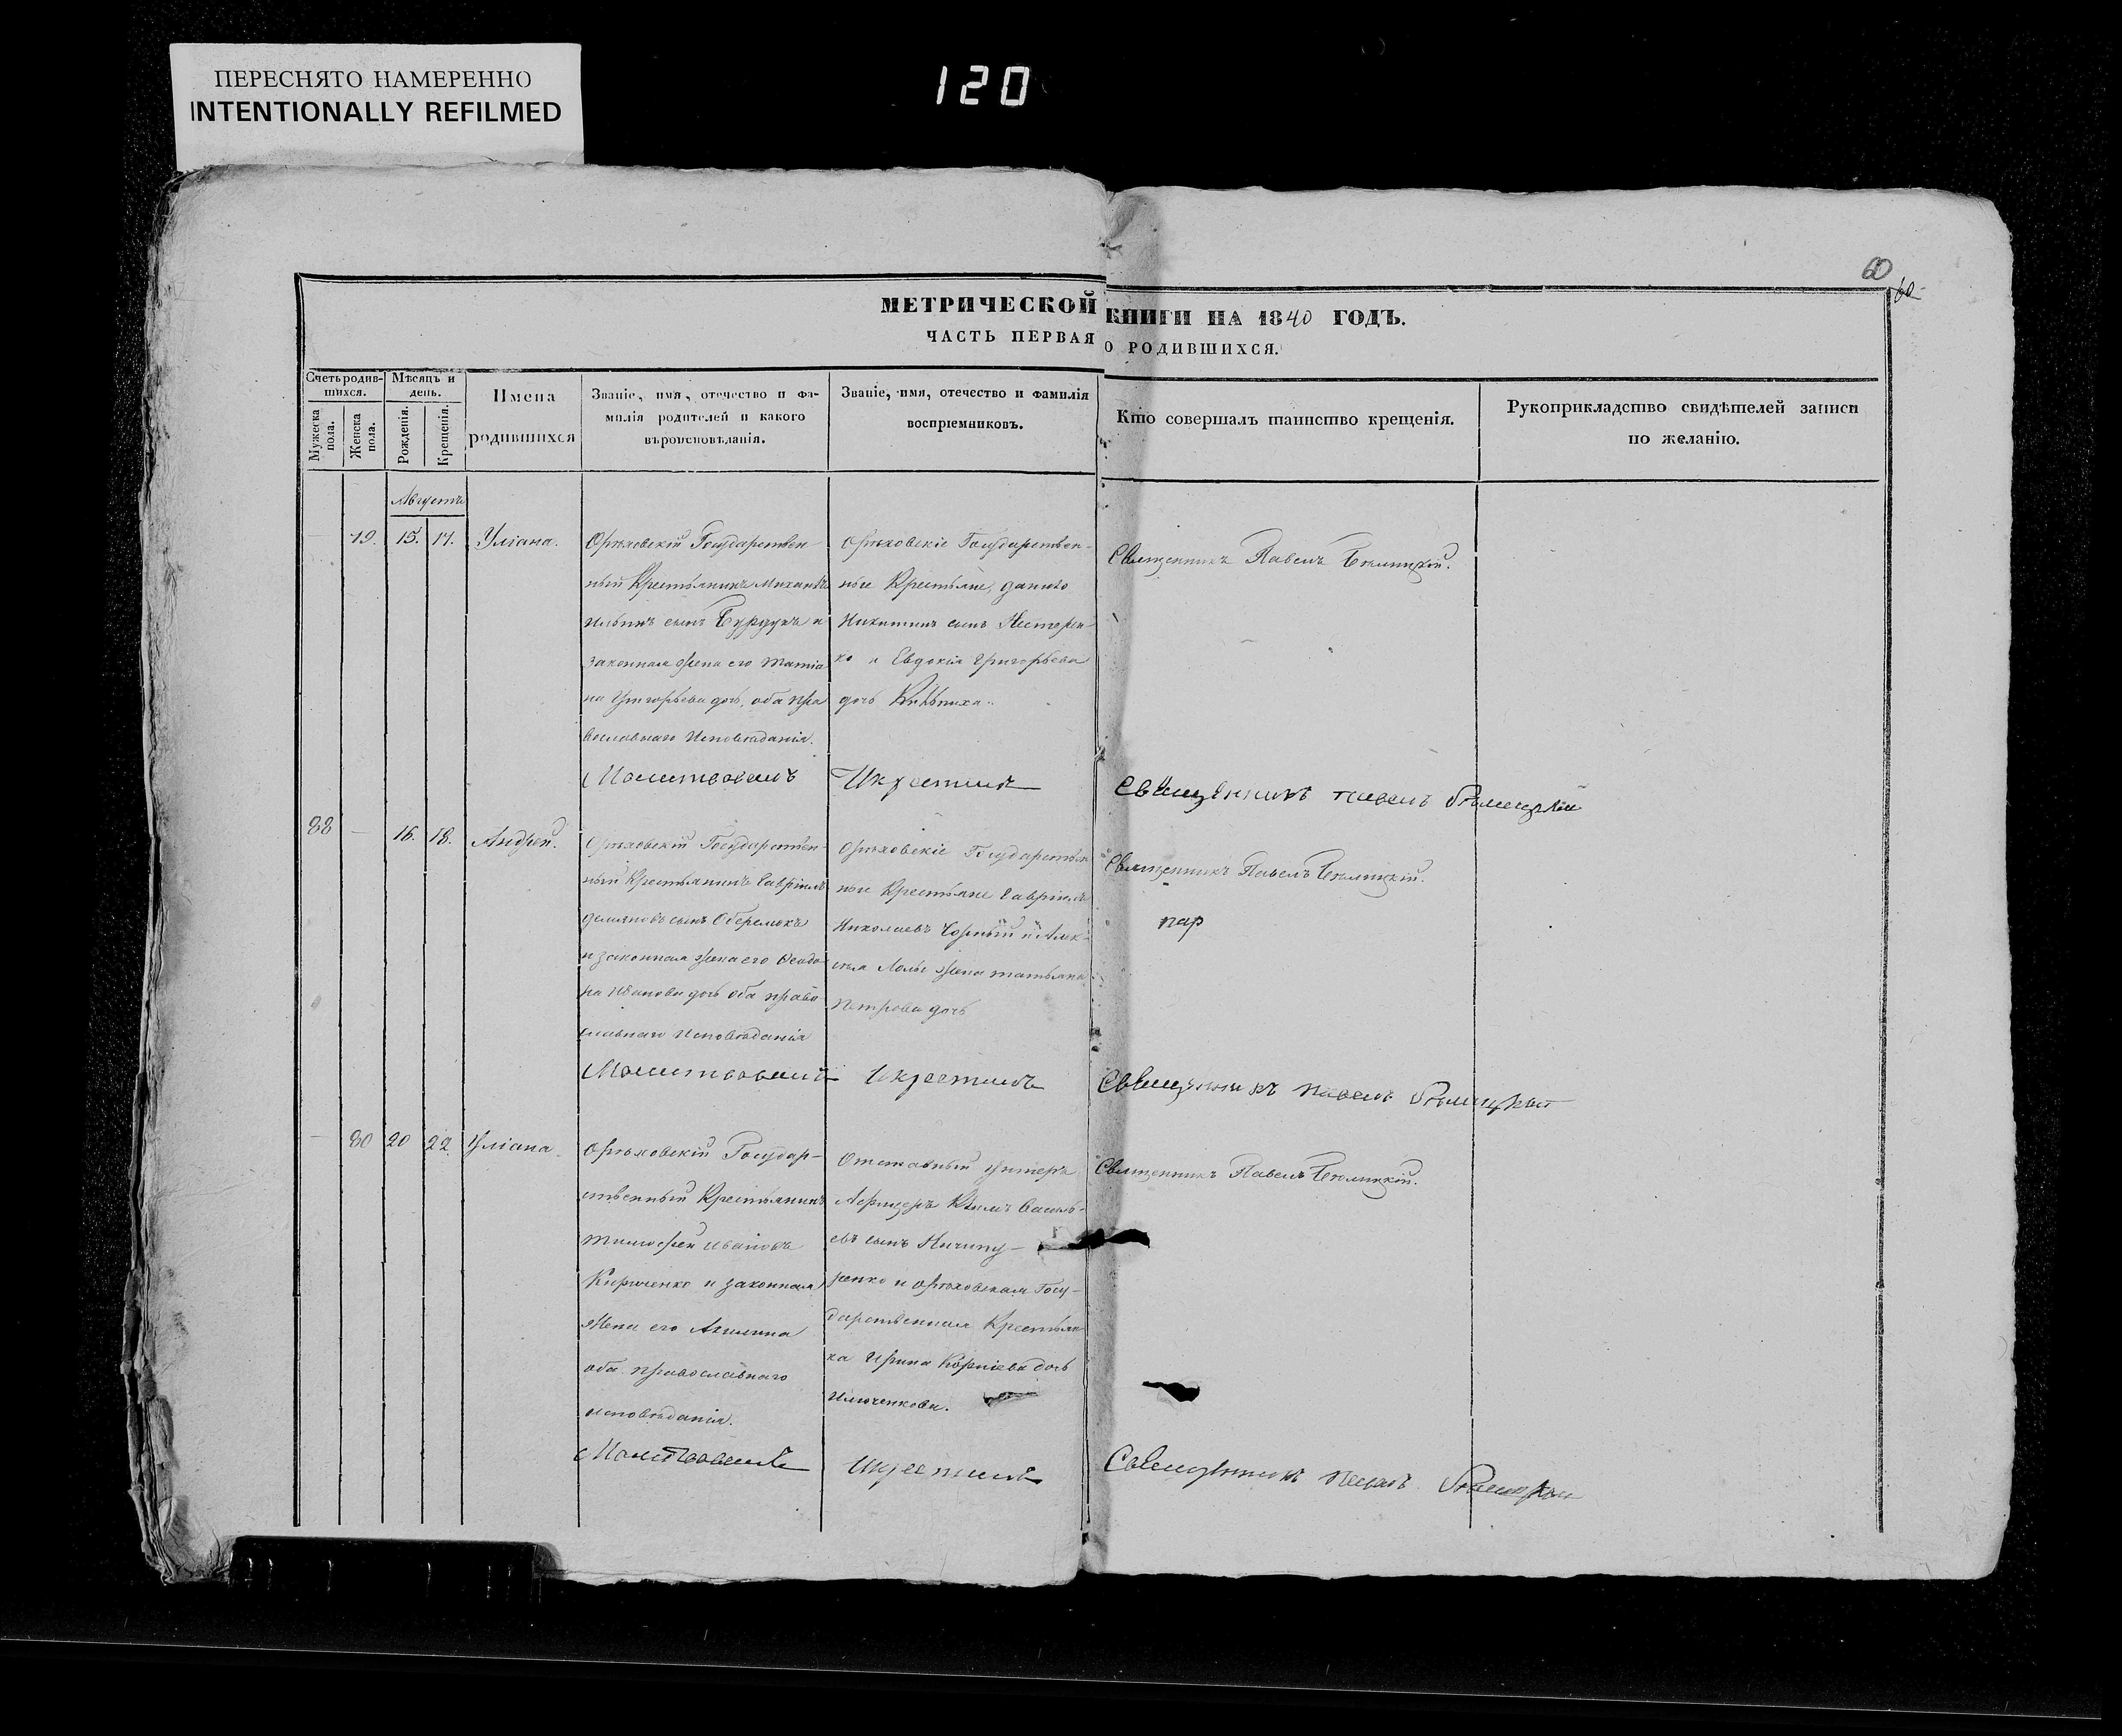 ПЕРЕСНЯТО НАМЕРЕННО
INTENTIONALLY REFILMED
120
60
60
МЕТРИЧЕСКОЙ КНИГИ НА 1840 ГОДЪ.
ЧАСТЬ ПЕРВАЯ О РОДИВШИХСЯ.
Счетъ родив-
шихся.
Мужеска пола.
Женска пола.
Мѣсяцъ и
день.
Рожденія.
Крещенія.
Имена
родившихся
Званіе, имя, отечество и фа-
милія родителей и какого
вѣроисповѣданія.
Званіе, имя, отечество и фамилія
воспріемниковъ.
Кто совершалъ таинство крещенія.
Рукоприкладство свидѣтелей записи
по желанію.
Августъ
19. 15. 17. Уліана.
Орѣховскій Государствен
ный Крестьянинъ Михаилъ
Ильинъ сынъ Бурдунъ и
законная жена его Татіа
на Григорьева дочь, оба пра
вославнаго Исповѣданія.
Орѣховскіе Государствен-
ные Крестьяне, Данило
Никитинъ сынъ Нестерен
ко и Евдокія Григорьева
дочь
Священникъ Павелъ Бѣлицкій.
Молитвовалъ Икрестилъ Священникъ павелъ Бѣлицкій
88 — 16. 18. Андрей.
Орѣховскій Государствен-
ный Крестьянинъ Гавріилъ
Демяновъ сынъ Оберемокъ
и законная жена его Ѳеодо
на Иванова дочь оба право
славнаго Исповѣданія
Орѣховскіе Государствен
ные Крестьяне Гавріилъ
Николаевъ Чорный и Алек-
жена татьяна
Петрова дочь
Священникъ Павелъ Бѣлицкій.
пар
Молитвовалъ Икрестилъ Священникъ павелъ Бѣлицкій
— 80 20 22 Уліана
Орѣховскій Государ-
ственный Крестьянинъ
Тимофей Ивановъ
Кириченко и законная
Жена его Акилина
оба православнаго
исповѣданія.
Отставный Унтеръ
Афицеръ Василь-
евъ сынъ Ничипу-
ренко и орѣховская Госу-
дарственная Крестьян
ка Ирина Корніева дочь
Илюченкова.
Священникъ Павелъ Бѣлицкій.
Молитвовалъ Икрестилъ Священникъ Павелъ Бѣлицкій